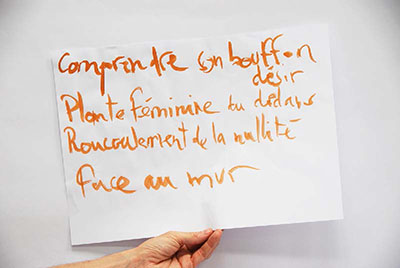 Comprendre son bouffon
désir
Plante féminine du dedans
Roucoulement de la nullité
Face au mur